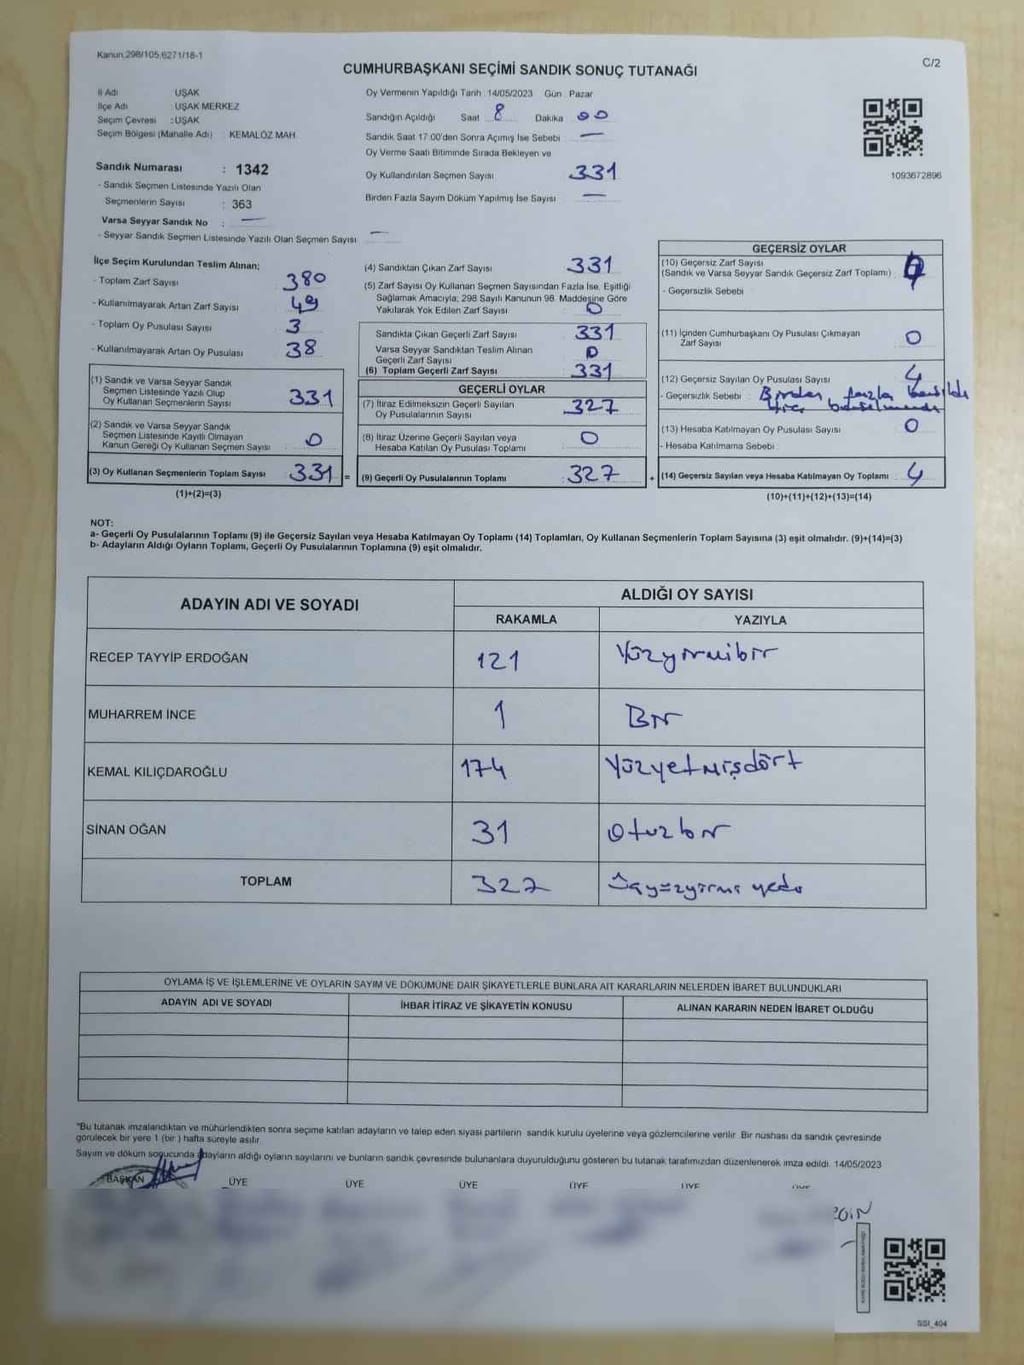 Kanun:298/105,6271/18-1
CUMHURBAŞKANI SEÇİMİ SANDIK SONUÇ TUTANAĞI
C/2
İl Adı UŞAK
İlçe Adı : UŞAK MERKEZ
Seçim Çevresi : UŞAK
Seçim Bölgesi (Mahalle Adı) KEMALÖZ MAH.
Sandık Numarası : 1342
- Sandık Seçmen Listesinde Yazılı Olan
Seçmenlerin Sayısı : 363
Varsa Seyyar Sandık No : —
- Seyyar Sandık Seçmen Listesinde Yazılı Olan Seçmen Sayısı —
Oy Vermenin Yapıldığı Tarih 14/05/2023 Gün Pazar
Sandığın Açıldığı Saat 8 Dakika 00
Sandık Saat 17:00'den Sonra Açımış İse Sebebi —
Oy Verme Saati Bitiminde Sırada Bekleyen ve
Oy Kullandırılan Seçmen Sayısı 331
Birden Fazla Sayım Döküm Yapılmış İse Sayısı —
1093672896
İlçe Seçim Kurulundan Teslim Alınan;
- Toplam Zarf Sayısı 380
- Kullanılmayarak Artan Zarf Sayısı 49
- Toplam Oy Pusulası Sayısı 3
- Kullanılmayarak Artan Oy Pusulası 38
(1) Sandık ve Varsa Seyyar Sandık
Seçmen Listesinde Yazılı Olup
Oy Kullanan Seçmenlerin Sayısı 331
(2) Sandık ve Varsa Seyyar Sandık
Seçmen Listesinde Kayıtlı Olmayan
Kanun Gereği Oy Kullanan Seçmen Sayısı 0
(3) Oy Kullanan Seçmenlerin Toplam Sayısı 331 =
(1)+(2)=(3)
(4) Sandıktan Çıkan Zarf Sayısı 331
(5) Zarf Sayısı Oy Kullanan Seçmen Sayısından Fazla İse, Eşitliği
Sağlamak Amacıyla; 298 Sayılı Kanunun 98. Maddesine Göre
Yakılarak Yok Edilen Zarf Sayısı 0
Sandıkta Çıkan Geçerli Zarf Sayısı 331
Varsa Seyyar Sandıktan Teslim Alınan
Geçerli Zarf Sayısı 0
(6) Toplam Geçerli Zarf Sayısı 331
GEÇERLİ OYLAR
(7) İtiraz Edilmeksizin Geçerli Sayılan
Oy Pusulalarının Sayısı 327
(8) İtiraz Üzerine Geçerli Sayılan veya
Hesaba Katılan Oy Pusulası Toplamı 0
(9) Geçerli Oy Pusulalarının Toplamı 327 +
GEÇERSİZ OYLAR
(10) Geçersiz Zarf Sayısı
(Sandık ve Varsa Seyyar Sandık Geçersiz Zarf Toplamı)
- Geçersizlik Sebebi
(11) İçinden Cumhurbaşkanı Oy Pusulası Çıkmayan
Zarf Sayısı 0
(12) Geçersiz Sayılan Oy Pusulası Sayısı 4
- Geçersizlik Sebebi : Birden fazla
(13) Hesaba Katılmayan Oy Pusulası Sayısı 0
- Hesaba Katılmama Sebebi :
(14) Geçersiz Sayılan veya Hesaba Katılmayan Oy Toplamı 4
(10)+(11)+(12)+(13)=(14)
NOT:
a- Geçerli Oy Pusulalarının Toplamı (9) ile Geçersiz Sayılan veya Hesaba Katılmayan Oy Toplamı (14) Toplamları, Oy Kullanan Seçmenlerin Toplam Sayısına (3) eşit olmalıdır. (9)+(14)=(3)
b- Adayların Aldığı Oyların Toplamı, Geçerli Oy Pusulalarının Toplamına (9) eşit olmalıdır.
ADAYIN ADI VE SOYADI
ALDIĞI OY SAYISI
RAKAMLA YAZIYLA
RECEP TAYYİP ERDOĞAN 121 Yüzyirmibir
MUHARREM İNCE 1 Bir
KEMAL KILIÇDAROĞLU 174 Yüzyetmişdört
SİNAN OĞAN 31 Otuzbir
TOPLAM 327 Üçyüzyirmi yedi
OYLAMA İŞ VE İŞLEMLERİNE VE OYLARIN SAYIM VE DÖKÜMÜNE DAİR ŞİKAYETLERLE BUNLARA AİT KARARLARIN NELERDEN İBARET BULUNDUKLARI
ADAYIN ADI VE SOYADI İHBAR İTİRAZ VE ŞİKAYETİN KONUSU ALINAN KARARIN NEDEN İBARET OLDUĞU
"Bu tutanak imzalandıktan ve mühürlendikten sonra seçime katılan adayların ve talep eden siyasi partilerin sandık kurulu üyelerine veya gözlemcilerine verilir. Bir nüshası da sandık çevresinde
görülecek bir yere 1 (bir ) hafta süreyle asılır.
Sayım ve döküm sonucunda adayların aldığı oyların sayılarını ve bunların sandık çevresinde bulunanlara duyurulduğunu gösteren bu tutanak tarafımızdan düzenlenerek imza edildi. 14/05/2023
BAŞKAN ÜYE ÜYE ÜYE ÜYE ÜYE
SSI_404